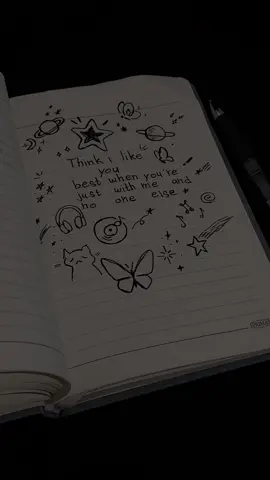 Think i like
you
best when you're
just with me and
no one else